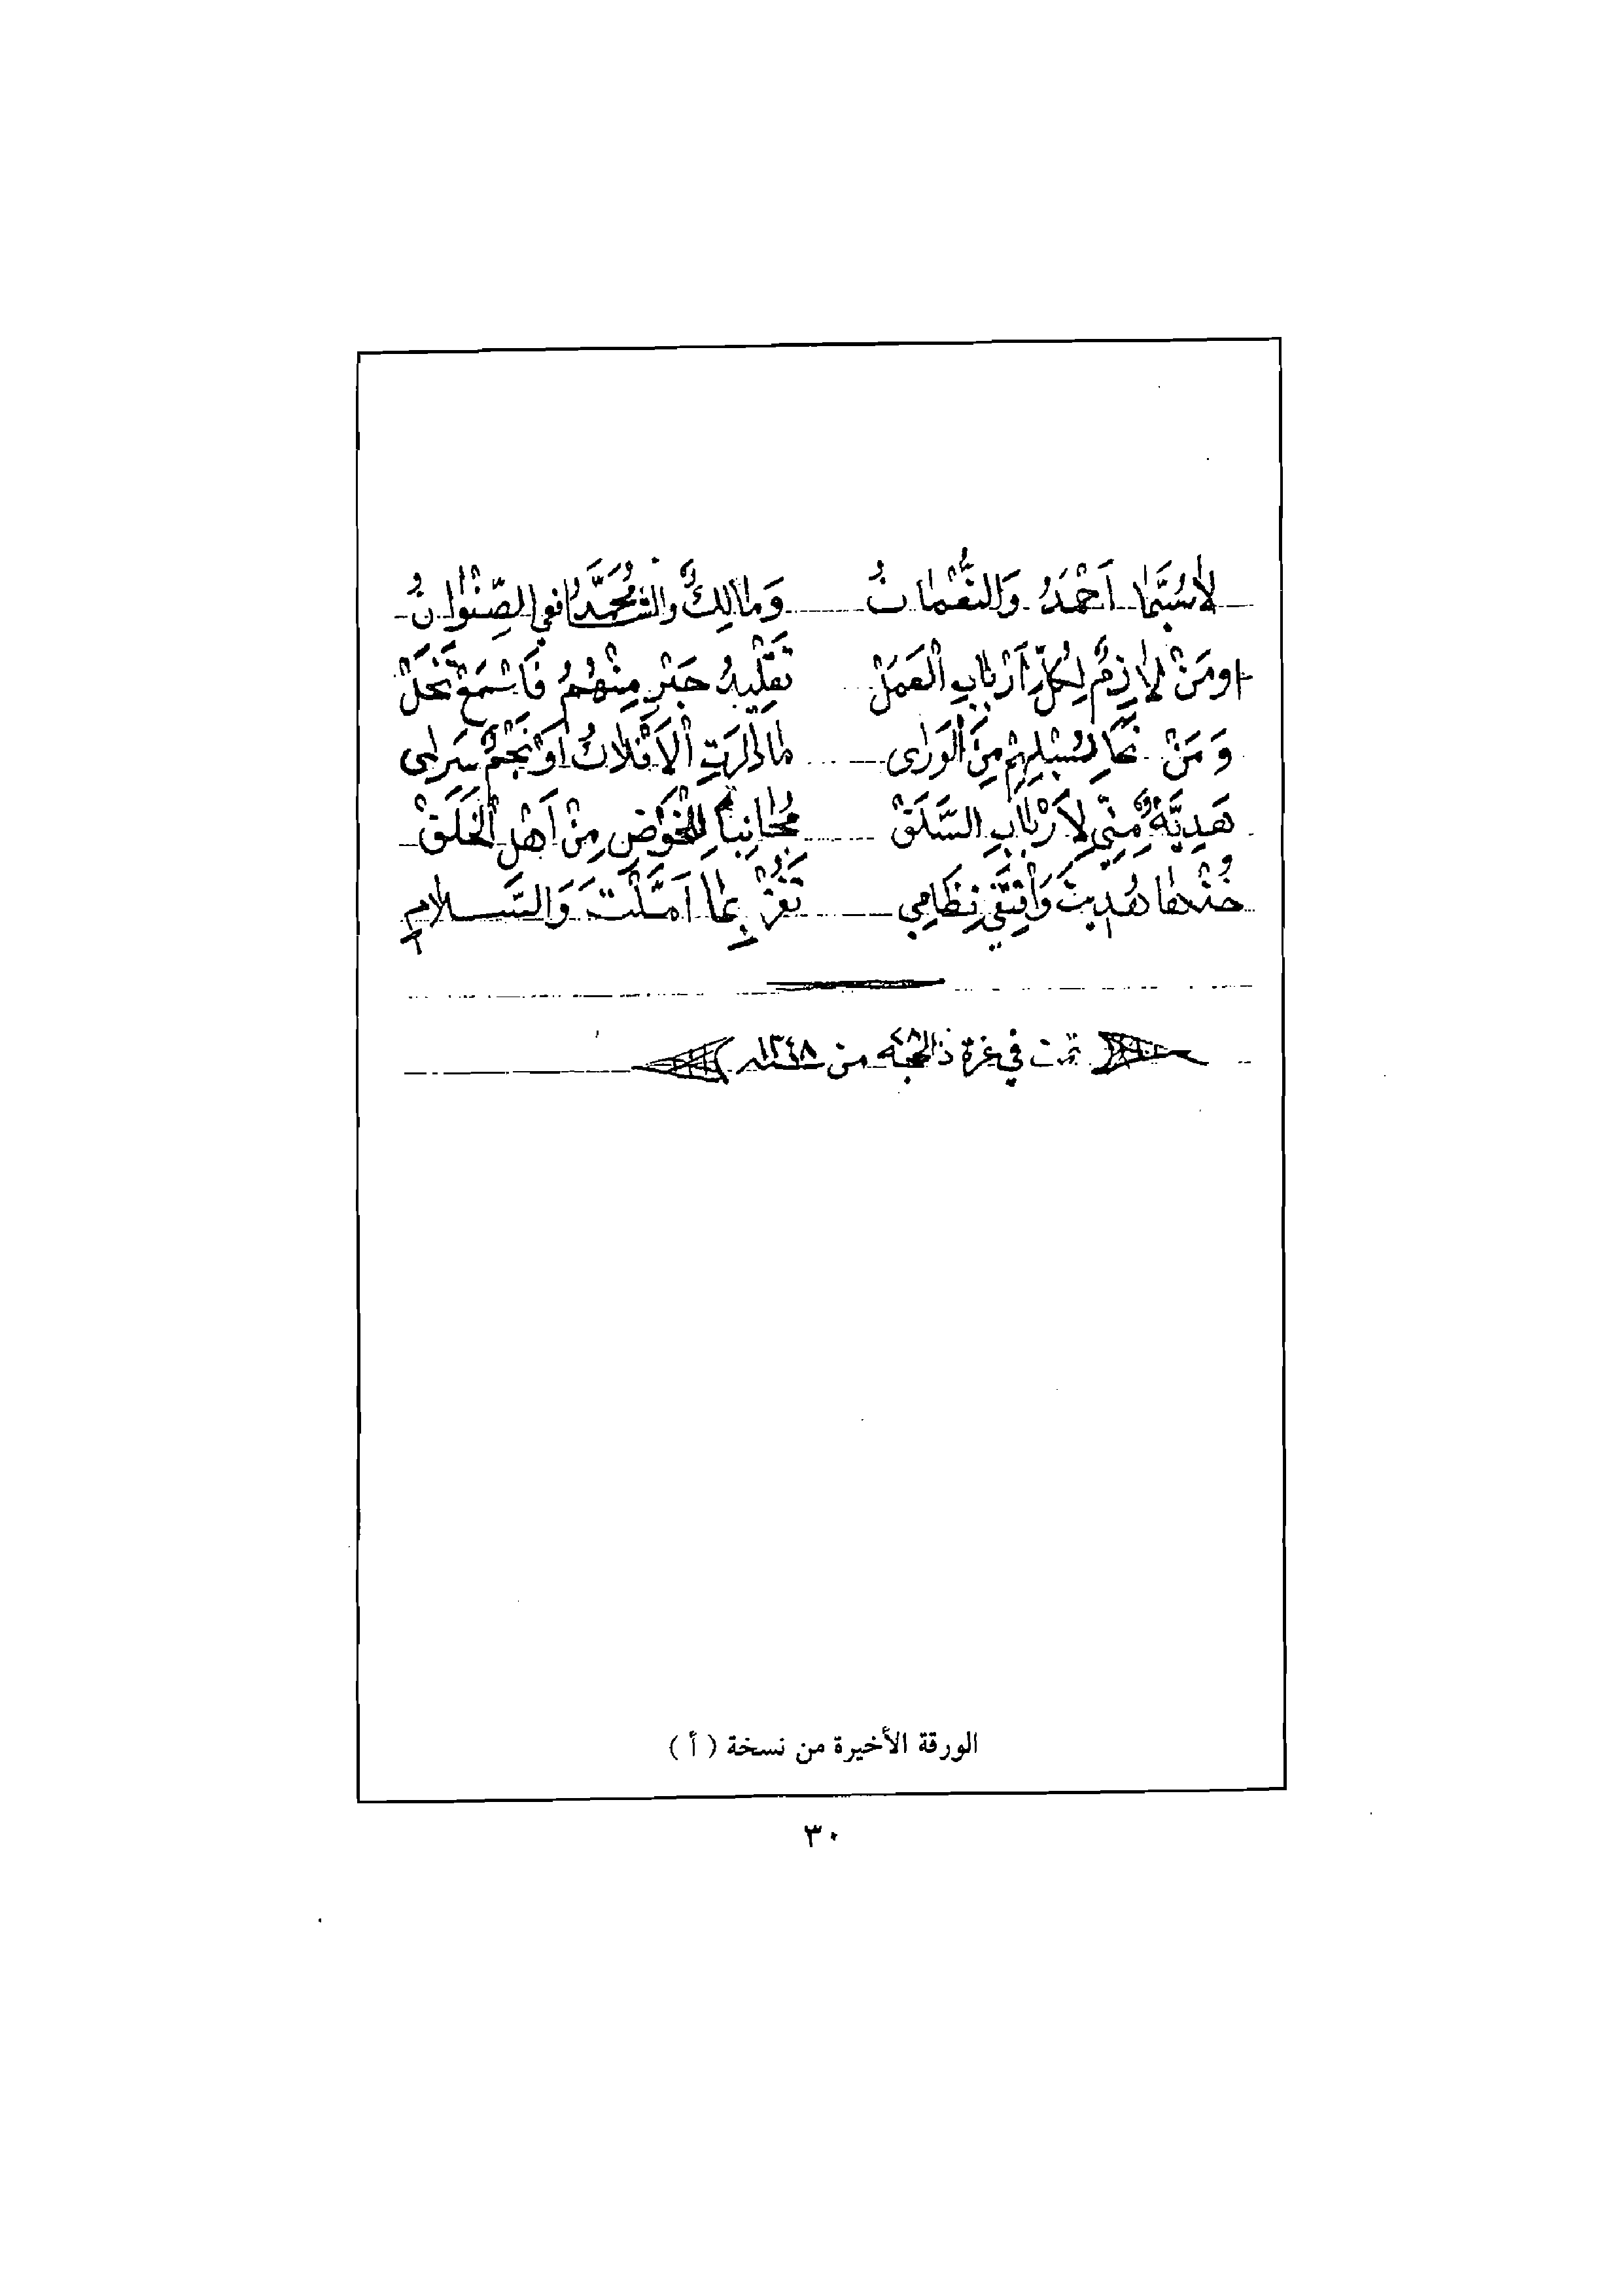 لَاسُيَّمَا اَحْمَدُ وَالنُّعْمَانُ وَمَالِكٌ وَالشَّافِعِي مُحَمَّدُ الصِّنْوَانُ
اومَنْ لَازِمٌ لِكُلِّ اَرْبَابِ الْعَمَلْ تَقْلِيدُ حَبْرٍ مِنْهُمُ فَاسْمَعْ تَخَلْ
وَمَنْ نَحَا لِسُبْلِهِمْ مِنَ الْوَرَى مَا دَارَتِ الْاَفْلَاكُ اَوْ نَجْمٌ سَرَى
هَدِيَّةٌ مِنِّي لِاَرْبَابِ السَّلَفْ مُجَانِباً لِلْخَوْضِ مِنْ اَهْلِ الْخَلَفْ
خُذْهَا هُدِيتَ وَاقْتَفِي نِظَامِي تَفُزْ بِمَا اَمَّلْتَ وَالسَّلَامِ
تمت في غرة ذالحجه من سنه ١٣٤٨
الورقة الأخيرة من نسخة ( أ )
٣٠